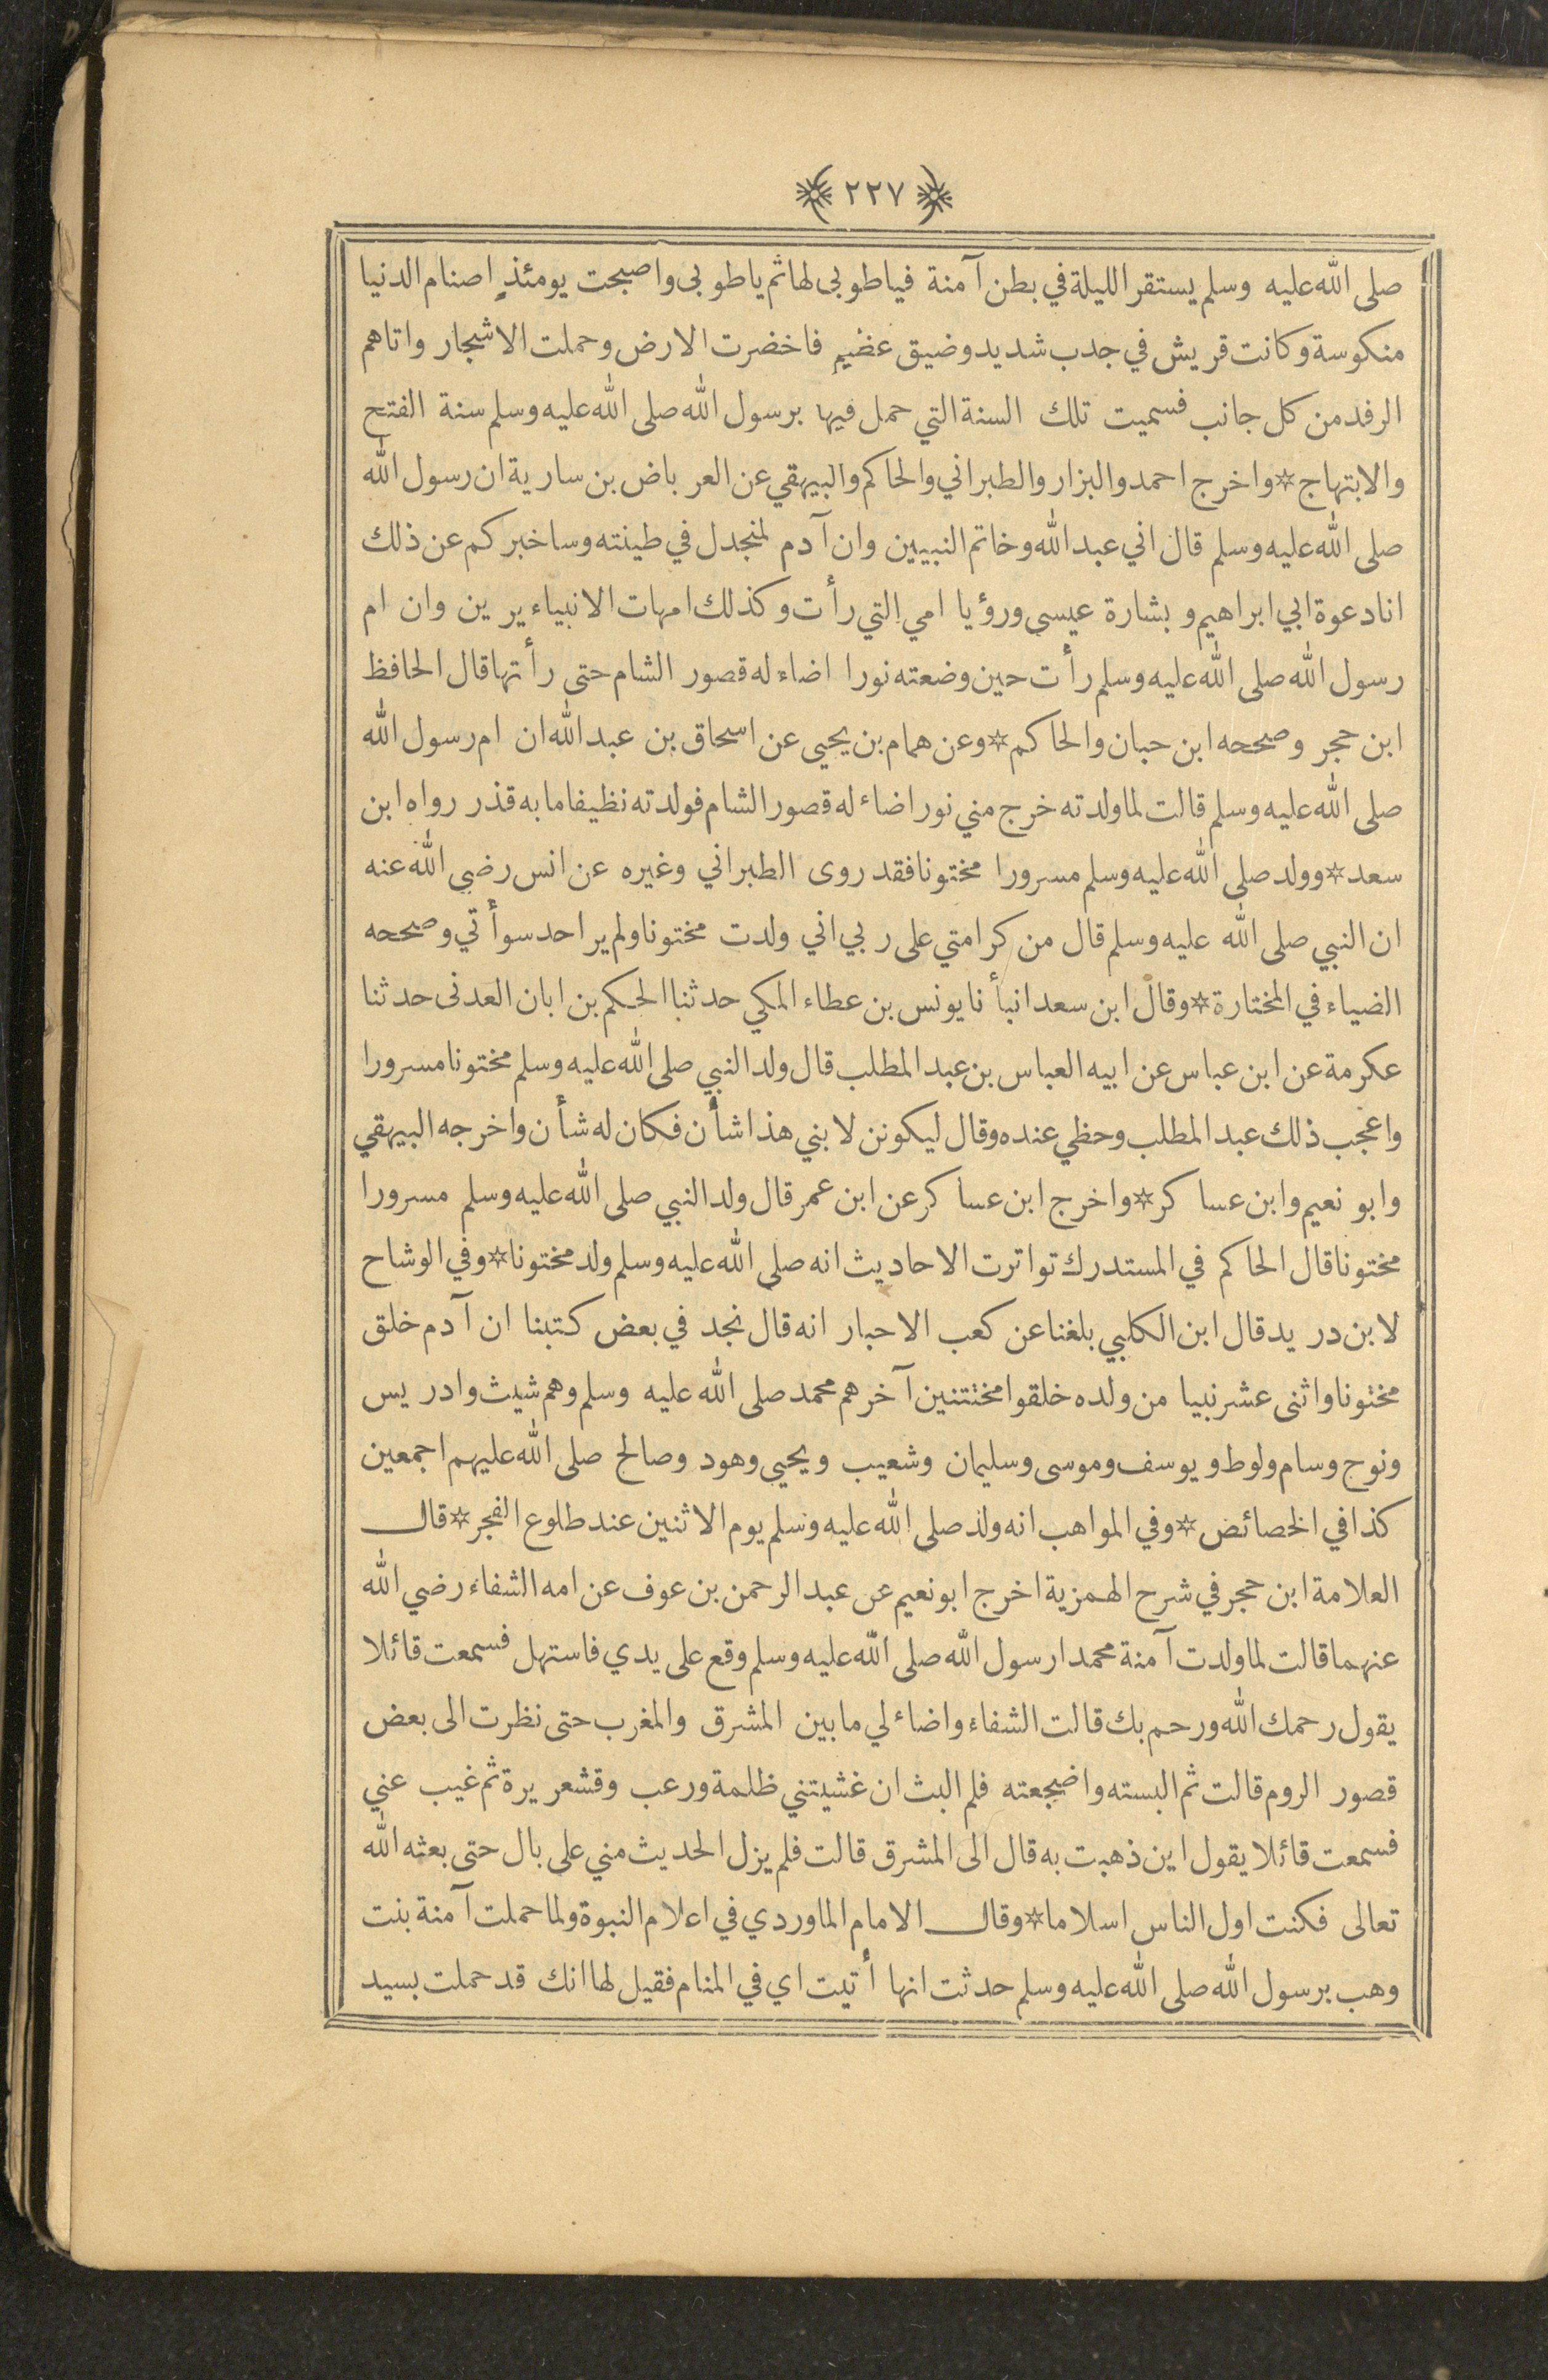 ٢٢٧
صلى الله عليه وسلم يستقر الليلة في بطن آمنة فياطوبى لها ثم ياطوبى واصبحت يومئذٍ اصنام الدنيا
منكوسة وكانت قريش في جدب شديد وضيق عظيم فاخضرت الارض وحملت الاشجار واتاهم
الرفد من كل جانب فسميت تلك السنة التي حمل فيها برسول الله صلى الله عليه وسلم سنة الفتح
والابتهاج * واخرج احمد والبزار والطبراني والحاكم والبيهقي عن العرباض بن سارية ان رسول الله
صلى الله عليه وسلم قال اني عبد الله وخاتم النبيين وان آدم لمنجدل في طينته وساخبركم عن ذلك
انا دعوة ابي ابراهيم وبشارة عيسى ورؤيا امي التي رأت وكذلك امهات الانبياء يرين وان ام
رسول الله صلى الله عليه وسلم رأت حين وضعته نورا اضاء له قصور الشام حتى رأتها قال الحافظ
ابن حجر وصححه ابن حبان والحاكم * وعن همام بن يحيى عن اسحاق بن عبد الله ان ام رسول الله
صلى الله عليه وسلم قالت لما ولدته خرج مني نور اضاء له قصور الشام فولدته نظيفا ما به قذر رواه ابن
سعد * وولد صلى الله عليه وسلم مسرورا مختونا فقد روى الطبراني وغيره عن انس رضي الله عنه
ان النبي صلى الله عليه وسلم قال من كرامتي على ربي اني ولدت مختونا ولم ير احد سوأتي وصححه
الضياء في المختارة * وقال ابن سعد انبأنا يونس بن عطاء المكي حدثنا الحكم بن ابان العدنى حدثنا
عكرمة عن ابن عباس عن ابيه العباس بن عبد المطلب قال ولد النبي صلى الله عليه وسلم مختونا مسرورا
واعجب ذلك عبد المطلب وحظي عنده وقال ليكونن لابني هذا شأن فكان له شأن واخرجه البيهقي
وابو نعيم وابن عساكر * واخرج ابن عساكر عن ابن عمر قال ولد النبي صلى الله عليه وسلم مسرورا
مختونا قال الحاكم في المستدرك تواترت الاحاديث انه صلى الله عليه وسلم ولد مختونا * وفي الوشاح
لابن دريد قال ابن الكلبي بلغنا عن كعب الاحبار انه قال نجد في بعض كتبنا ان آدم خلق
مختونا واثنى عشر نبيا من ولده خلقوا مختتنين آخرهم محمد صلى الله عليه وسلم وهم شيث وادريس
ونوح وسام ولوط ويوسف وموسى وسليمان وشعيب ويحيي وهود وصالح صلى الله عليهم اجمعين
كذا في الخصائص * وفي المواهب انه ولد صلى الله عليه وسلم يوم الاثنين عند طلوع الفجر * قال
العلامة ابن حجر في شرح الهمزية اخرج ابو نعيم عن عبد الرحمن بن عوف عن امه الشفاء رضي الله
عنهما قالت لما ولدت آمنة محمدا رسول الله صلى الله عليه وسلم وقع على يدي فاستهل فسمعت قائلا
يقول رحمك الله ورحم بك قالت الشفاء واضاء لي ما بين المشرق والمغرب حتى نظرت الى بعض
قصور الروم قالت ثم البسته واضجعته فلم البث ان غشيتني ظلمة ورعب وقشعريرة ثم غيب عني
فسمعت قائلا يقول اين ذهبت به قال الى المشرق قالت فلم يزل الحديث مني على بال حتى بعثه الله
تعالى فكنت اول الناس اسلاما * وقال الامام الماوردي في اعلام النبوة ولما حملت آمنة بنت
وهب برسول الله صلى الله عليه وسلم حدثت انها أتيت اي في المنام فقيل لها انك قد حملت بسيد